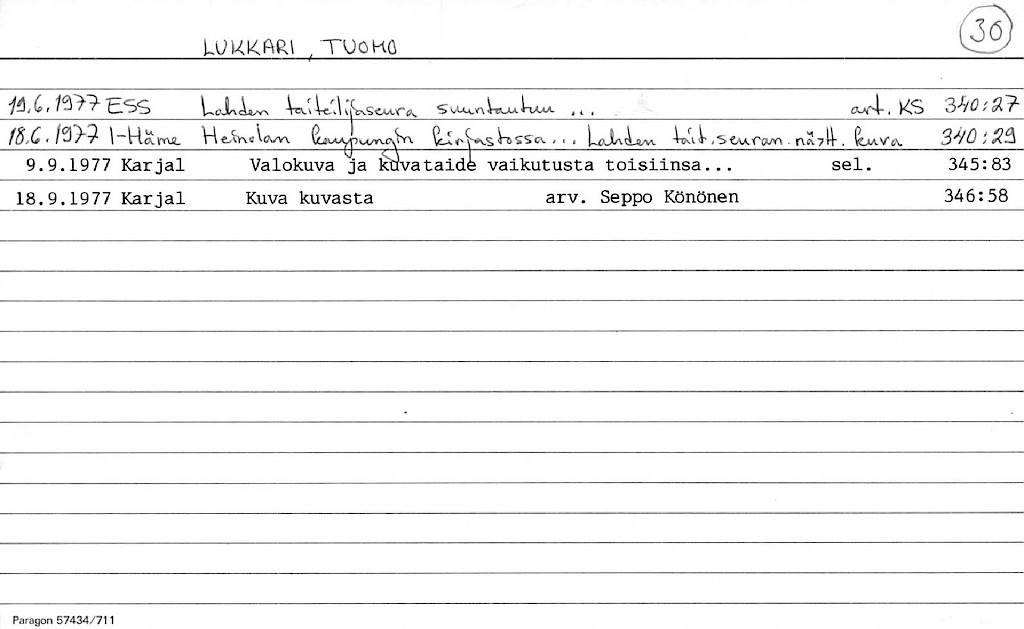 30
LUKKARI, TUOMO
19.6.1977 ESS Lahden taiteilijaseura suuntautuu ... art. KS 340:27
18.6.1977 I-Häme Heinolan kaupungin kirjastossa... Lahden tait.seuran näytt. kuva 340:29
9.9.1977 Karjal Valokuva ja kuvataide vaikutusta toisiinsa... sel. 345:83
18.9.1977 Karjal Kuva kuvasta arv. Seppo Könönen 346:58
Paragon 57434/711